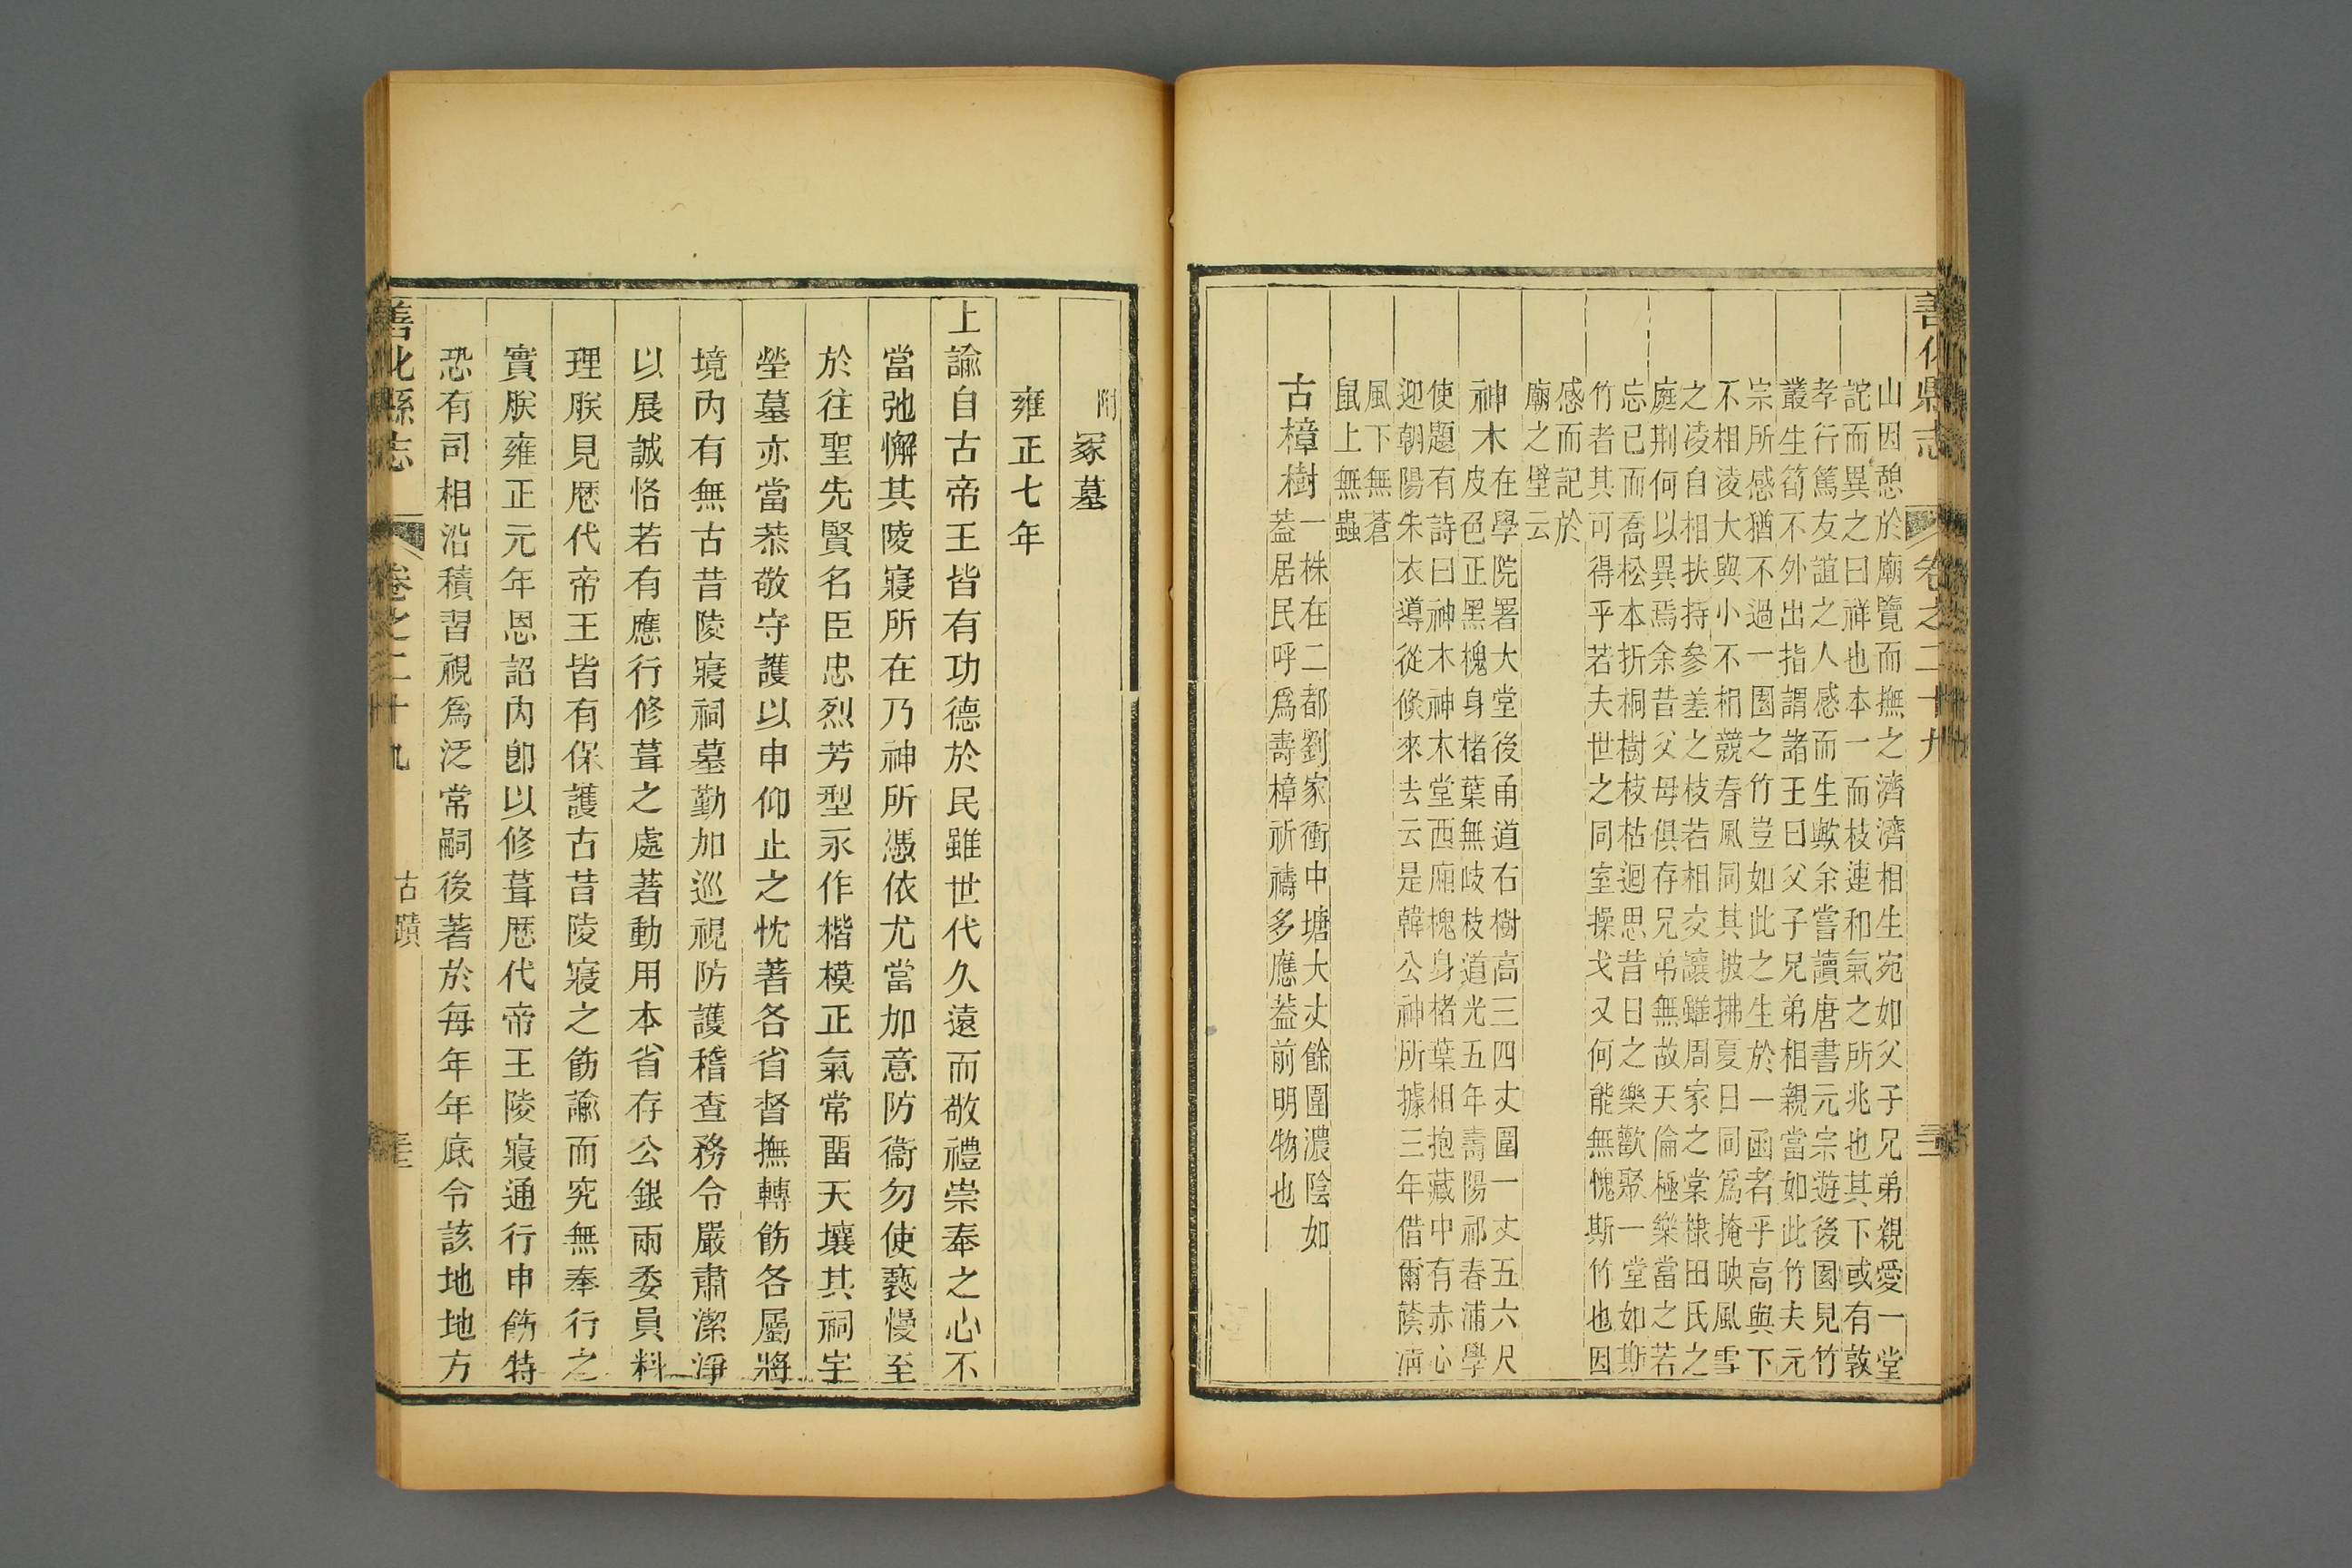 善化縣志
卷之二十九
山因憩於廟覽而撫之濟濟相生宛如父子兄弟親愛一堂
詫而異之曰祥也本一而枝連和氣之所兆也其下或有敦
孝行篤友誼之人感而生歟余嘗讀唐書元宗遊後園見竹
叢生筍不外出指謂諸王曰父子兄弟相親當如此竹夫元
宗所感猶不過一園之竹豈如此之生於一函者乎高與下
不相淩大與小不相競春風同其披拂夏日同爲掩映風雪
之凌自相扶持參差之枝若相交讓雖周家之棠棣田氏之
庭荆何以異焉余昔父母俱存兄弟無故天倫極樂當之若
忘已而喬松本折桐樹枝枯迴思昔日之樂歡聚一堂如斯
竹者其可得乎若夫世之同室操戈又何能無愧斯竹也因
感而記於
廟之壁云
神木在學院署大堂後甬道右樹高三四丈圍一丈五六尺
皮色正黑槐身楮葉無岐枝道光五年壽陽祁春浦學
使題有詩曰神木神木堂西廂槐身楮葉相抱藏中有赤心
迎朝陽朱衣導從倐來去云是韓公神所據三年借爾蔭滿
風下無蒼
鼠上無蟲
古樟樹一株在二都劉家衝中塘大丈餘圍濃陰如
葢居民呼爲壽樟祈禱多應葢前明物也
附冢墓
雍正七年
上諭自古帝王皆有功德於民雖世代久遠而敬禮崇奉之心不
當弛懈其陵寢所在乃神所憑依尤當加意防衞勿使褻慢至
於往聖先賢名臣忠烈芳型永作楷模正氣常留天壤其祠宇
塋墓亦當恭敬守護以申仰止之忱著各省督撫轉飭各屬將
境内有無古昔陵寢祠墓勤加巡視防護稽查務令嚴肅潔淨
以展誠恪若有應行修葺之處著動用本省存公銀兩委員料
理朕見歷代帝王皆有保護古昔陵寢之飭諭而究無奉行之
實朕雍正元年恩詔内卽以修葺歷代帝王陵寢通行申飭特
恐有司相沿積習視爲泛常嗣後著於每年年底令該地地方
善化縣志
卷之二十九
古蹟